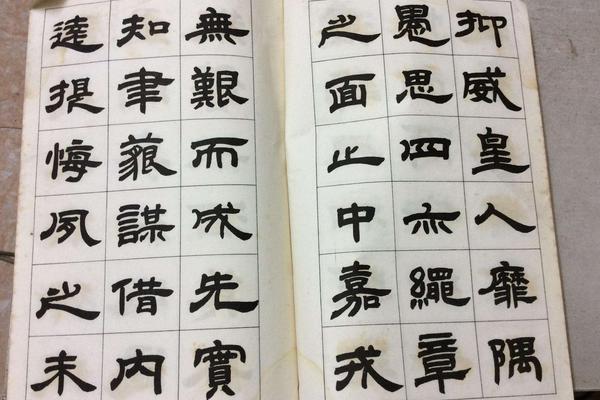 抑威皇人靡隅
愚思四亦繩章
之面止中嘉戎
無艱而成先實
知聿藐謀借内
達提悔夙之未